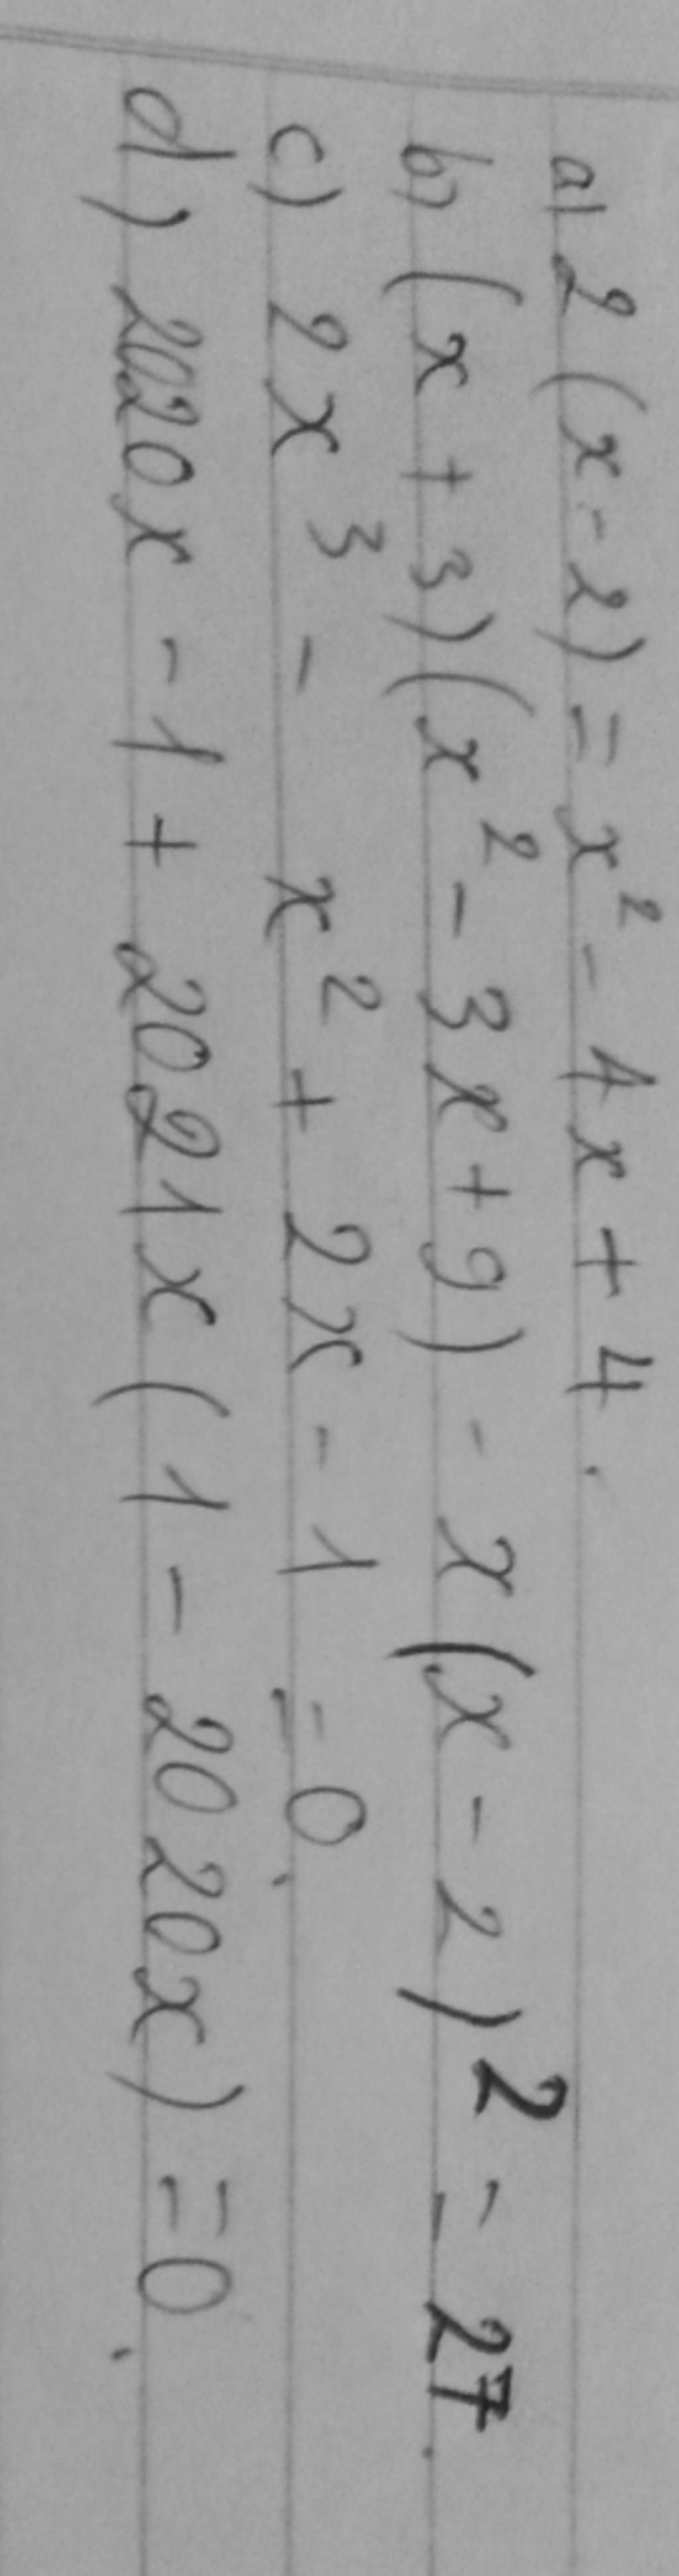 a) 2(x-2) = x² - 4x + 4.
b) (x + 3)(x² - 3x + 9) - x(x - 2)² = 27.
c) 2x³ - x² + 2x - 1 = 0.
d) 2020x - 1 + 2021x(1 - 2020x) = 0.